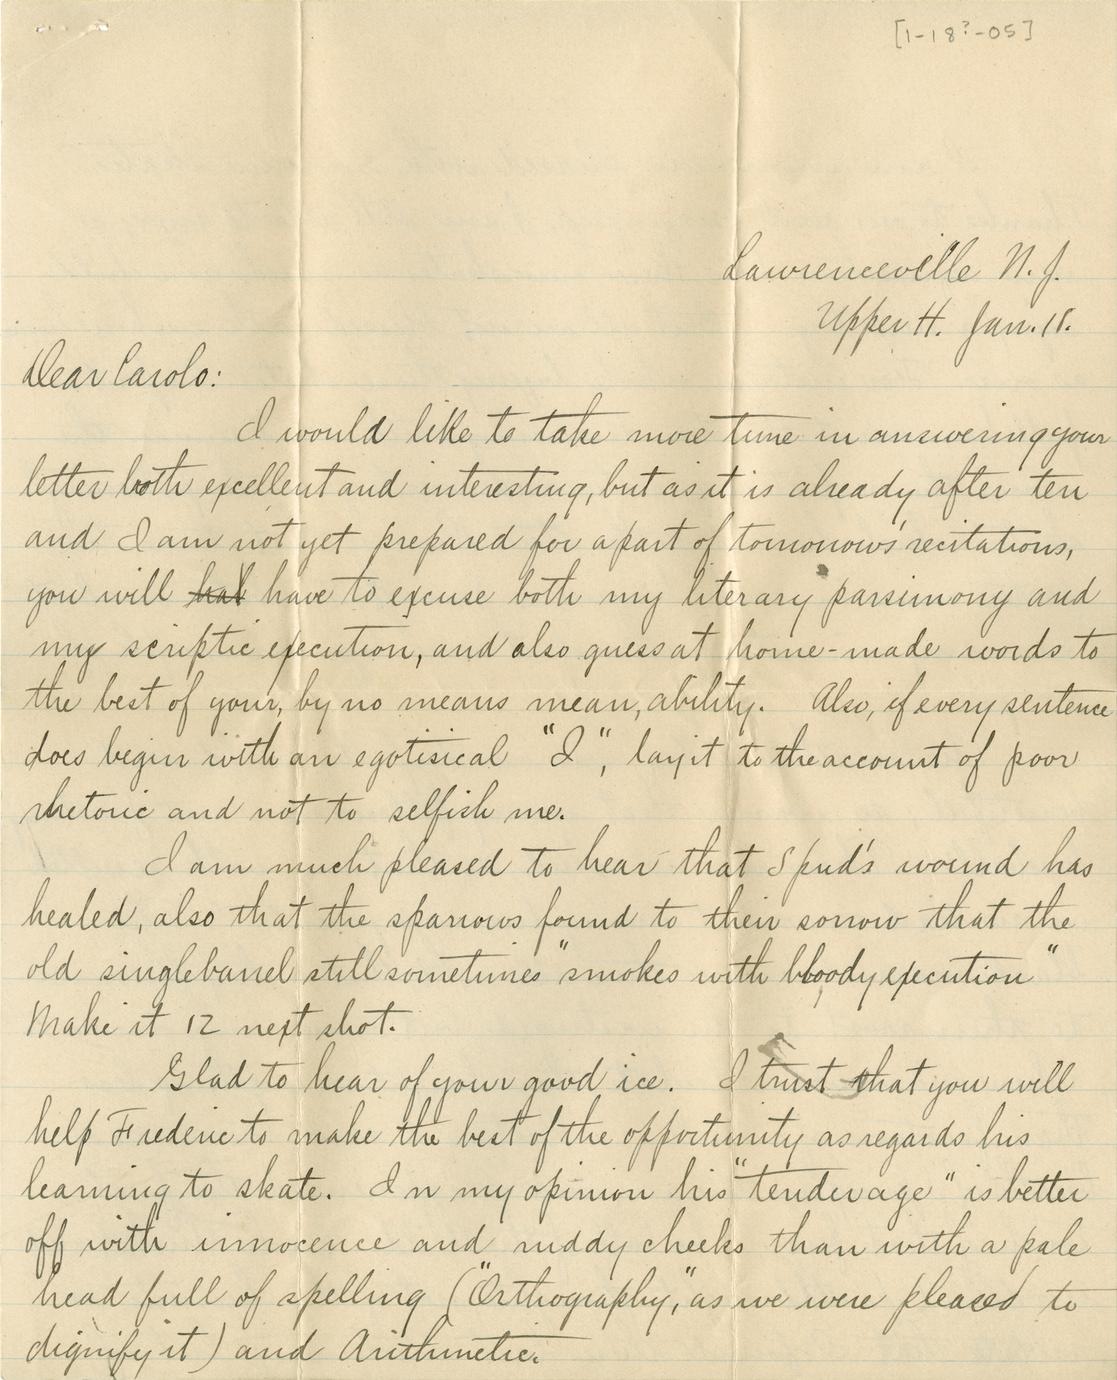 [1-18?-05]
Lawrenceville N. J.
Upper H. Jan. 18.
Dear Carolo:
I would like to take more time in answering your
letter both excellent and interesting, but as it is already after ten
and I am not yet prepared for a part of tomorrows' recitations,
you will hav have to excuse both my literary parsimony and
my scriptic execution, and also guess at home-made words to
the best of your, by no means mean, ability. Also, if every sentence
does begin with an egotisical "I", lay it to the account of poor
rhetoric and not to selfish me.
I am much pleased to hear that Spud's wound has
healed, also that the sparrows found to their sorrow that the
old singlebarrel still sometimes "smokes with bloody execution"
Make it 12 next shot.
Glad to hear of your good ice. I trust that you will
help Frederic to make the best of the opportunity as regards his
learning to skate. In my opinion his "tender age" is better
off with innocence and ruddy cheeks than with a pale
head full of spelling ("Orthography", as we were pleased to
dignify it) and Arithmetic.